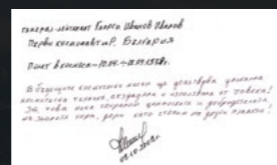 Генерал-лейтенант Георги Иванов Иванов
Първи космонавт на Р. България
Полет в космоса – 10.04. ÷ 12.04.1979 г.
В бъдещите космически мисии ще участвува уникална
космическа техника, създадена и използвана от човека!
За това нека съхраним ценностите и добродетелите
на Земните хора, дори като стъпим на други планети!